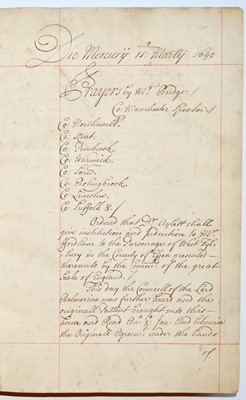 Die Mercurij 11º Martij 1640
Prayers by Mr. Bridge
Co. Manchester Speaker
Co. Northumb.
Co. Kent.
Co. Pembrook
Co. Warwick.
Co. Sarū
Co. Bolingbrook
Co. Lincolne
Co. Suffolk 8.
Ordered that Dr. Aylett shall
give institution and induction to Mr.
to the Parsonage of West Tyl-
bury in the County of Essex presented
thereunto by the Commrs. of the great
Seale of England.
This day the Councell of the Lord
Balmerino was further heard and the
originall Pattent brought into this
house and Read
the Originall Agreemt. under the hands
of